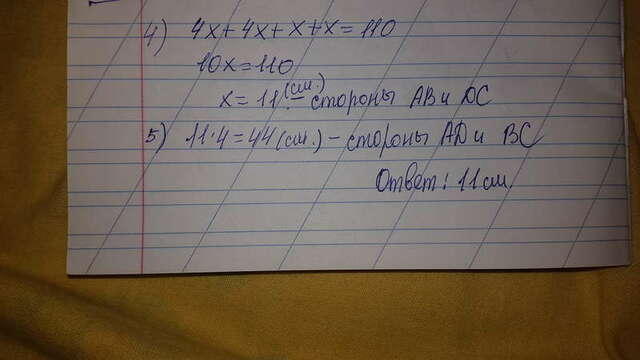 4) 4x+4x+x+x=110
10x=110
x=11 (см.) – стороны AB и DC
5) 11·4=44 (см.) – стороны AD и BC
Ответ: 11 см.